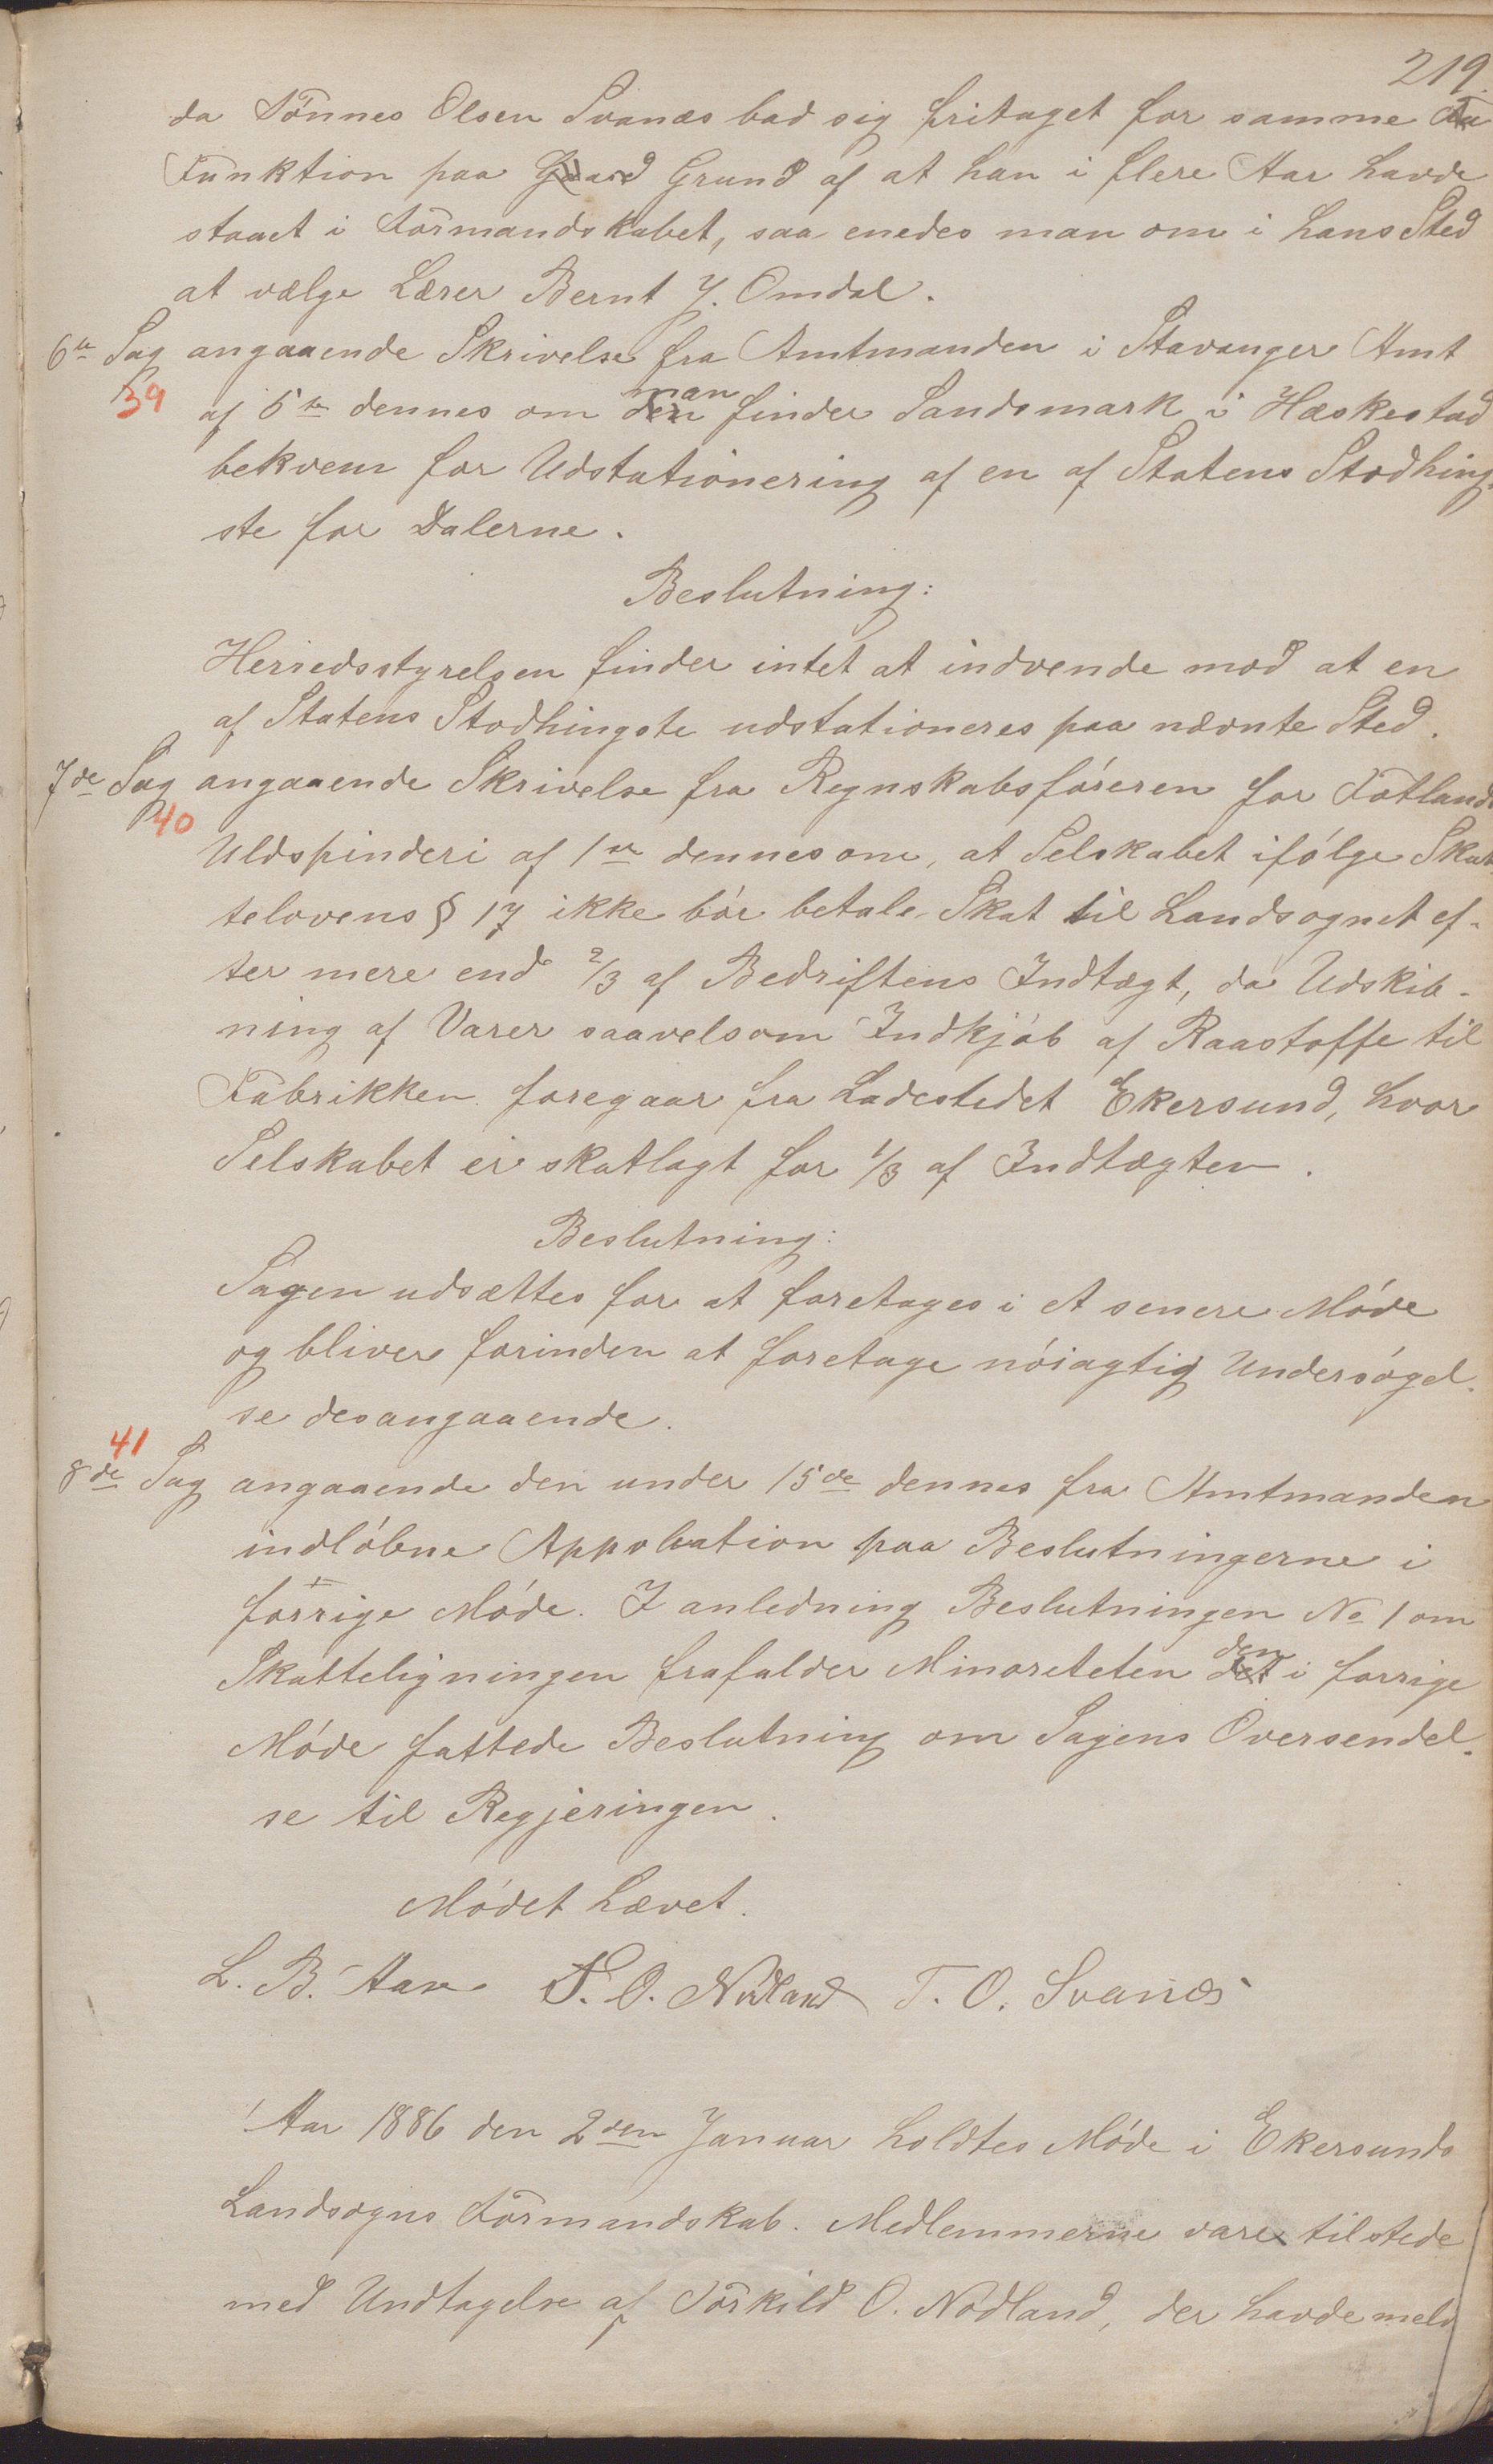 219.
da Tönnes Olsen Svanæs bad sig fritaget for samme da
Funktion paa Gaard Grund af at han i flere Aar havde
staaet i Formandskabet, saa enedes man om i hans Sted
at vælge Lærer Bernt J. Omdal.
6te Sag angaaende Skrivelse fra Amtmanden i Stavanger Amt
39 af 5te dennes om den man finder Sandsmark i Hæskestad
bekvem for Udstationering af en af Statens Stodhing-
ste for Dalerne.
Beslutning:
Herredsstyrelsen finder intet at indvende mod at en
af Statens Stodhingste udstationeres paa nævnte Sted.
7de Sag angaaende Skrivelse fra Regnskabsföreren for Fotlands
40
Uldspinderi af 1ste dennes om, at Selskabet ifölge Skat-
telovens § 17 ikke bör betale Skat til Landsognet ef-
ter mere end 2/3 af Bedriftens Indtægt, da Udskib-
ning af Varer saavelsom Indkjöb af Raastoffe til
Fabrikken foregaar fra Ladestedet Ekersund, hvor
Selskabet er skatlagt for 1/3 af Indtægten.
Beslutning:
Sagen udsættes for at foretages i et senere Möde
og bliver forinden at foretage nöiagtig Undersögel-
se desangaaende.
41
8de Sag angaaende den under 15de dennes fra Amtmanden
indlöbne Approbation paa Beslutningerne i
forrige Möde. I anledning Beslutningen No 1 om
Skatteligningen frafalder Minoriteten det den i forrige
Möde fattede Beslutning om Sagens Oversendel-
se til Regjeringen.
Mödet hævet.
L. B. Aase T. O. Nödland T. O. Svanæs
Aar 1886 den 2den Januar holdtes Möde i Ekersunds
Landsogns Formandskab. Medlemmerne vare tilstede
med Undtagelse af Torkild O. Nödland, der havde meld